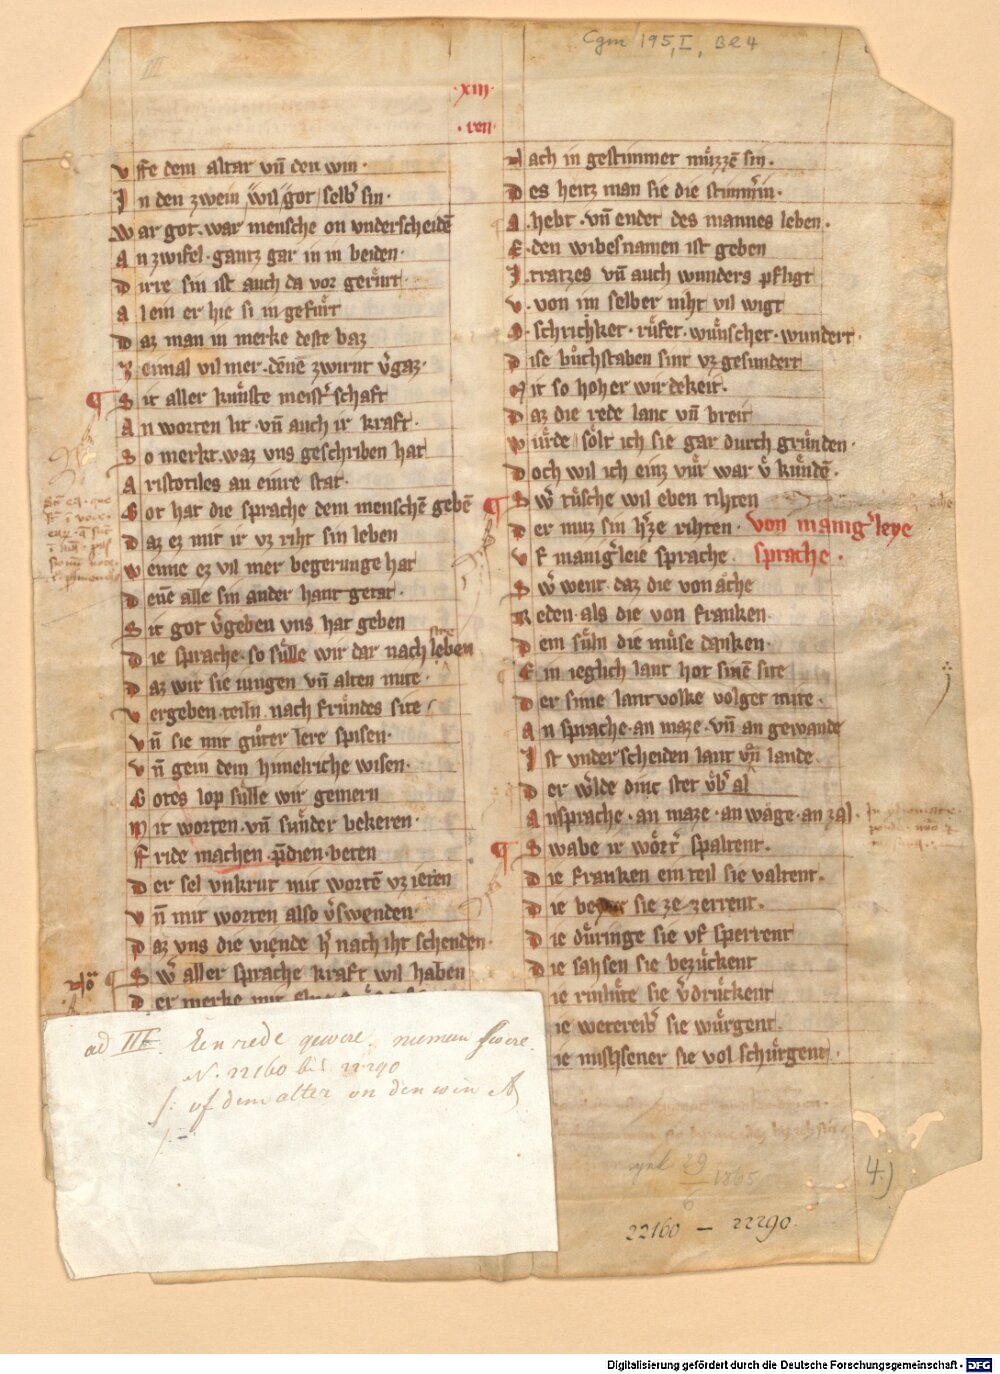 Cgm 195,I, Bl 4
III
·xiii·
·ren·
v ffe dem altar vn̄ den win·
I n den zwein wil got selb͛ sin·
w ar got·war mensche on vnderscheidē
A n zwifel·gantz gar in in beiden·
D irre sin ist auch da vor gerůrt·
A lein er hie si in gefůrt
D az man in merke deste baz
Z einmal vil mer·dēne zwirnt v͛gaz·
¶ S it aller kůnste meist͛schaft
A n worten lit·vn̄ auch ir kraft·
S o merkt·waz vns geschriben hat
A ristotiles an einre stat·
G ot hat die sprache dem menschē gebē
D az ez mit ir vz riht sin leben
W enne ez vil mer begerunge hat
D enē alle sin ander hant getat·
S it got v͛geben vns hat geben
D ie sprache·so sůlle wir dar nach leben
D az wir sie iungen vn̄ alten mite·
v ergeben·teiln nach frůndes site
v n̄ sie mit gůter lere spisen·
v n̄ gein dem himelriche wisen·
G otes lop sůlle wir gemern
M it worten·vn̄ sůnder bekeren·
ff ride machen·p̄dien·beten
D er sel vnkrut mit wortē vz ieten
v n̄ mit worten also v͛swenden·
D az vns die viende h͛ nach iht schenden·
¶ S w͛ aller sprache kraft wil haben
D er merke mit
N ach in gestimmer můzzē sin·
D es heitz man sie die stimm͛in·
A ·hebt·vn̄ endet des mannes leben·
E ·den wibesnamen ist geben
I ·tratzes vn̄ auch wunders pfligt
v ·von im selber niht vil wigt
O ·schrichket·růfet·wůnschet·wundert·
D ise bůchstaben sint vz gesundert
M it so hoher wirdekeit·
D az die rede lanc vn̄ breit
W ůrde sölt ich sie gar durch grůnden·
D och wil ich einz vůr war v͛ kůndē·
¶ S w͛ tůsche wil eben tihten
D er muz sin h͛ze rihten· von manig͛leye
v f manig͛leie sprache sprache·
S w͛ went·daz die von åche
R eden·als die von franken·
D em sůln die můse danken·
E in ieglich lant hot sinē site
D er sime lantvolke volget mite·
A n sprache·an maze·vn̄ an gewande
I st vnderscheiden lant von lande
D er w͛lde dinc stet ůb͛ al
A n sprache·an maze·an wåge·an zal·
¶ S wabe ir wört͛ spaltent·
D ie franken ein teil sie valtent·
D ie beyer sie ze zerrent·
D ie důringe sie vf sperrent
D ie sahsen sie bezůckent
ie rinlůte sie v͛drůckent
ie wetereib͛ sie wůrgent·
ie mishsener sie vol schůrgent·
ad III. Ein rede gevere. nieman swere.
N. 22160 bis 22290
/: uf dem alter vn den win
29
6
1865
4.)
22160 — 22290.
Digitalisierung gefördert durch die Deutsche Forschungsgemeinschaft - DFG